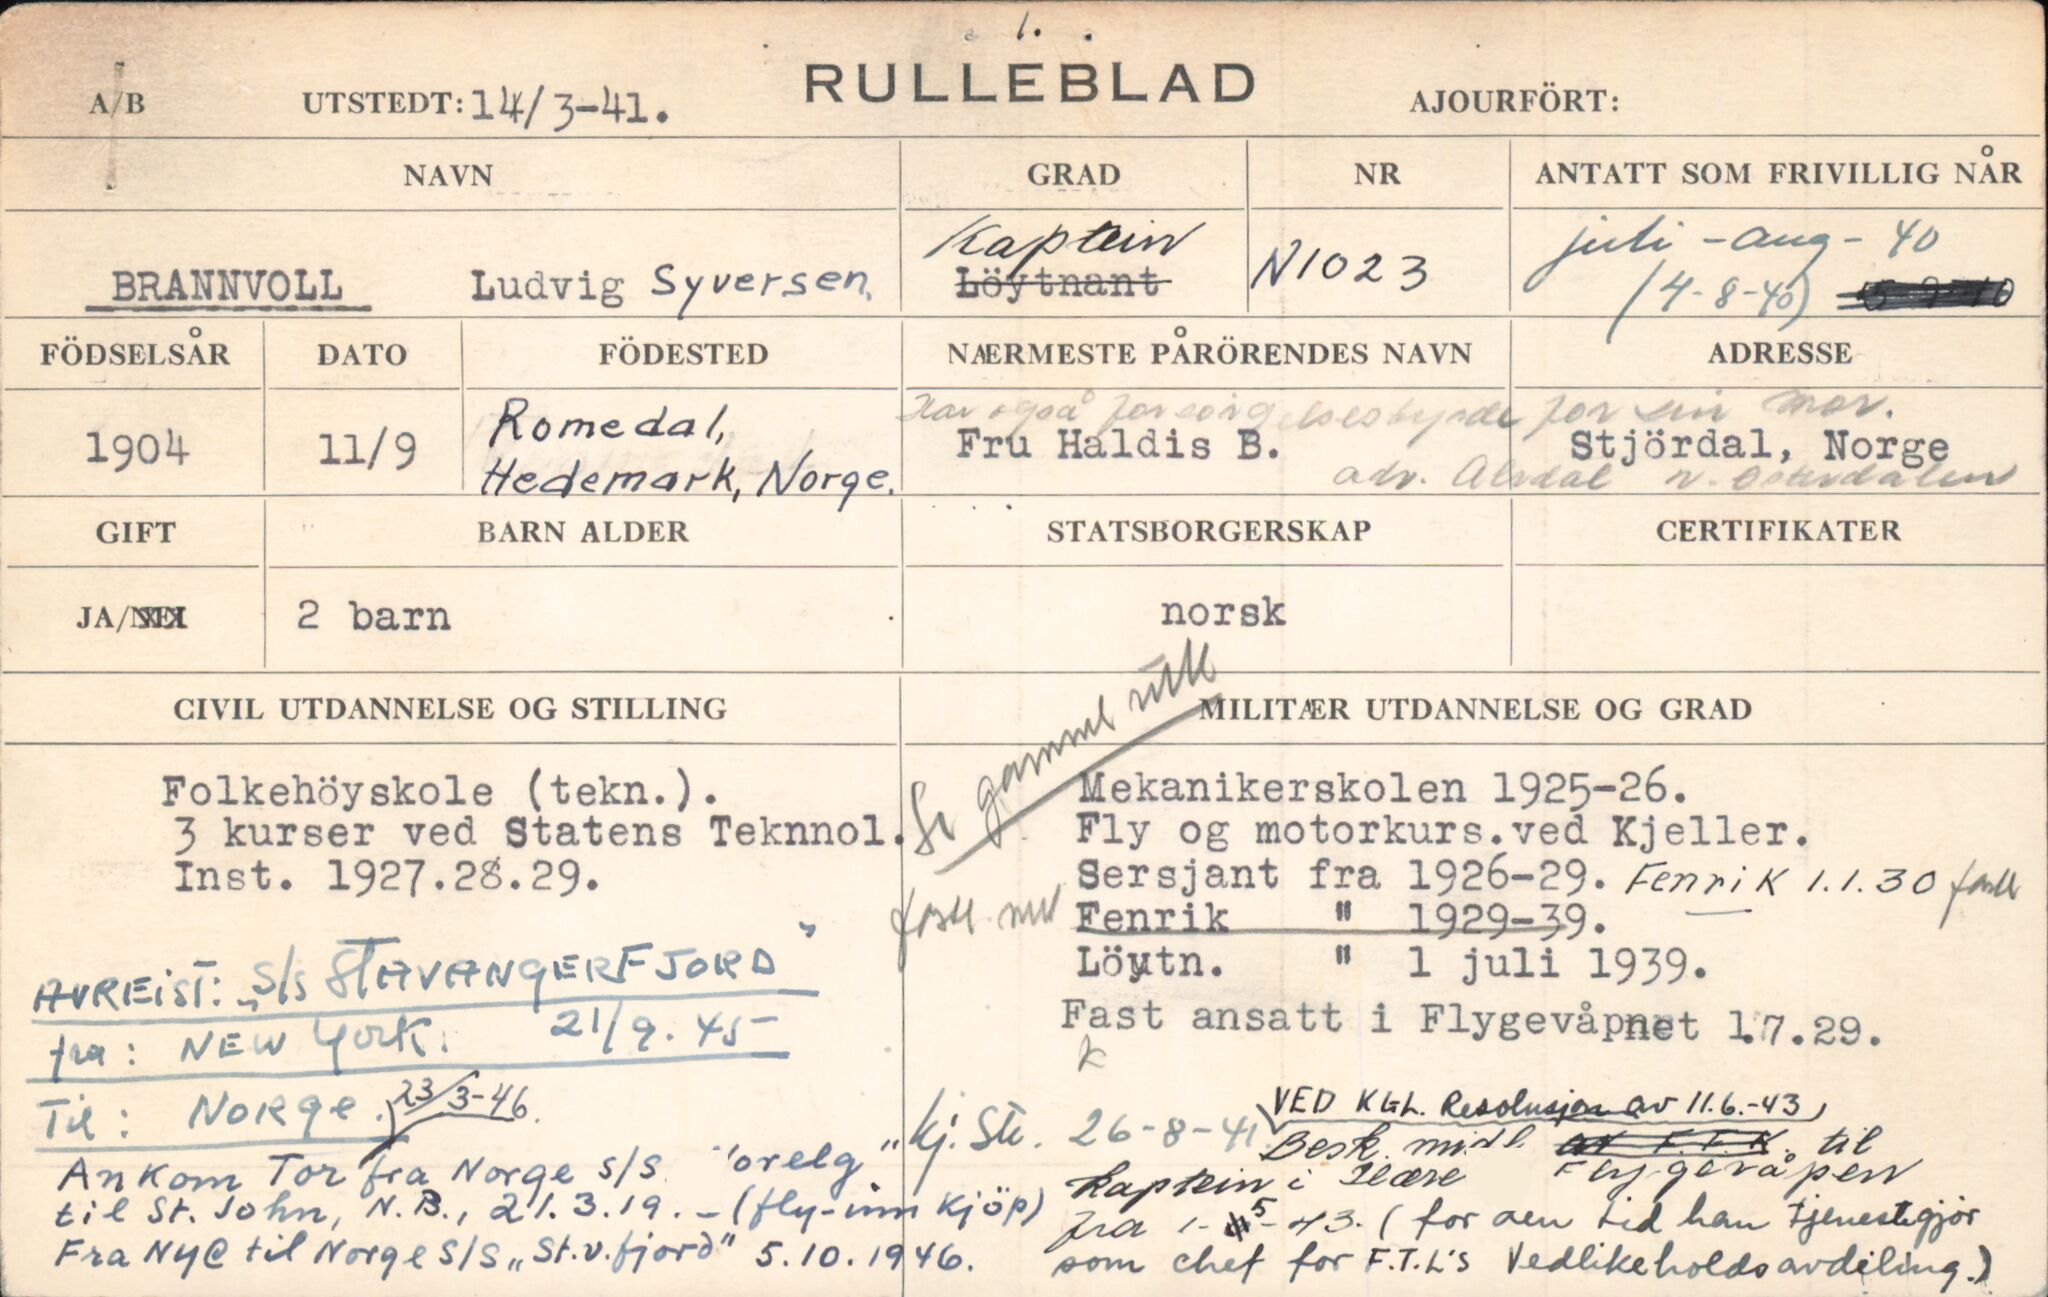 1.
A/B UTSTEDT: 14/3-41. RULLEBLAD AJOURFÖRT:
NAVN GRAD NR ANTATT SOM FRIVILLIG NÅR
Kaptein juli - aug - 40
BRANNVOLL Ludvig Syversen, Löytnant N1023 (4-8-40)
FÖDSELSÅR DATO FÖDESTED NÆRMESTE PÅRÖRENDES NAVN ADRESSE
Har også forsörgelsesbyrde for sin mor.
1904 11/9 Romedal, Fru Haldis B. Stjördal, Norge
Hedemark, Norge. adr. Alvdal n. Österdalen
GIFT BARN ALDER STATSBORGERSKAP CERTIFIKATER
JA/NEI 2 barn norsk
CIVIL UTDANNELSE OG STILLING MILITÆR UTDANNELSE OG GRAD
Se gammel rulle
Folkehöyskole (tekn.).
3 kurser ved Statens Teknnol.
Inst. 1927.28.29.
AVREIST: "S/S STAVANGERFJORD"
fra: NEW York. 21/9. 45
Til: Norge. 23/3-46.
Ankom Tor fra Norge S/S "orelg"
til St. John, N.B., 21.3.19. - (fly-inn kjöp)
Fra NYC til Norge S/S "St.v.fjord" 5.10.1946.
Mekanikerskolen 1925-26.
Fly og motorkurs.ved Kjeller.
Sersjant fra 1926-29. Fenrik 1.1.30
Fenrik " 1929-39.
Löytn. " 1 juli 1939.
Fast ansatt i Flygevåpnet 1.7.29.
k
VED KGL. Resolusjon av 11.6.-43,
Kj. Ste. 26-8-41. Besk. midl. av F.T.K. til
Kaptein i Hære Flygevåpen
fra 1-5-43. (for den tid han tjenestgjör
som chef for F.T.L's Vedlikeholdsavdeling.)